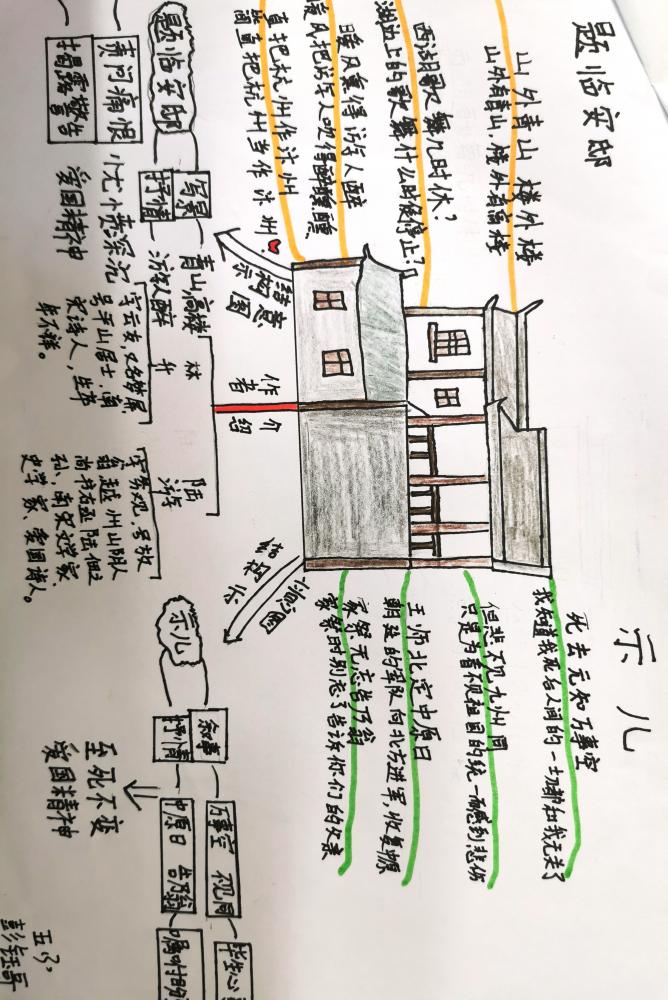 题临安邸
山外青山 楼外楼
山外有青山,楼外有高楼
西湖歌舞几时休?
湖边上的歌舞什么时候停止?
暖风熏得游人醉
暖风把游人吹得醉醺醺
直把杭州作汴州
简直把杭州当作汴州。
示儿
死去元知万事空
我知道我死后人间的一切都和我无关了
但悲不见九州同
只是为看不见祖国的统一而感到悲伤
王师北定中原日
朝廷的军队向北方进军,收复中原
家祭无忘告乃翁
家祭时别忘了告诉你们的父亲
结构意
示图
作者
介绍
结构示
意图
林升
字云友,又名梦屏
号平山居士,南
宋诗人,生卒
年不详。
陆游
字务观,号放
翁,越州山阴人
尚书右丞陆佃之
孙,南宋文学家、
史学家、爱国诗人。
题临安邸
写景
抒情
青山,高楼
游人醉
责问痛恨
揭露敬告
忧愤深沉
爱国精神
示儿
叙事
抒情
万事空 视同
中原日 告乃翁
毕生心
嘱咐
至死不变
爱国精神
五
彭钰哥